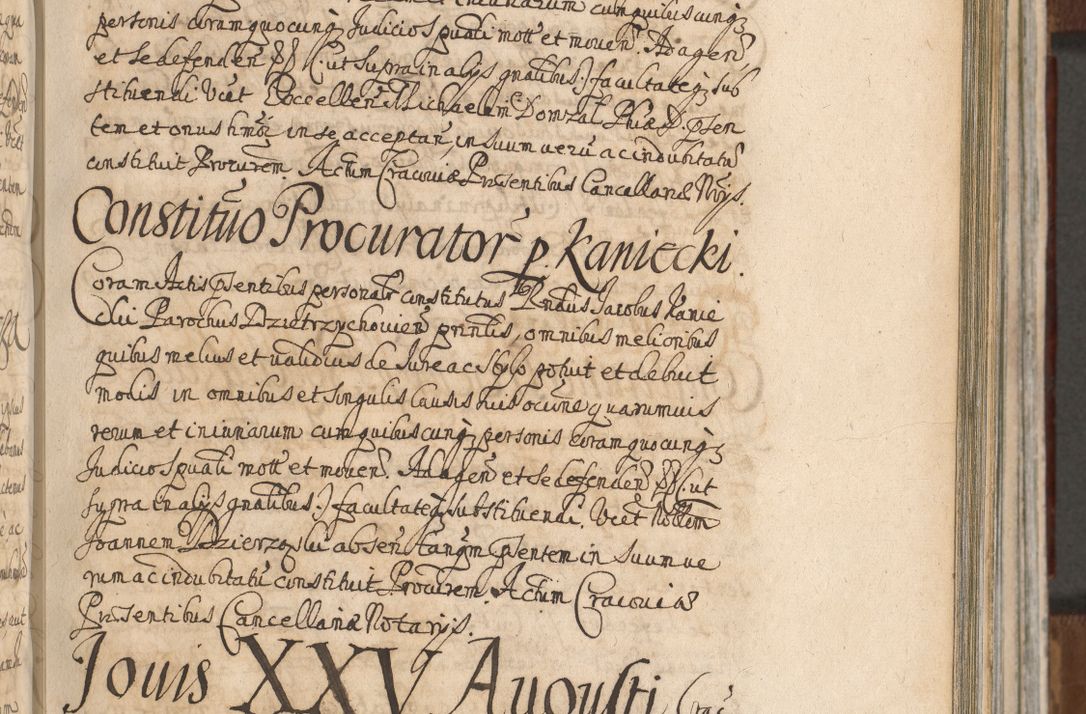 iniuriarum cum quibuscunq3
personis coram quocunq3 Judicio spuali mott et mouen. Ad agen
et se defenden PP (: ut supra in alijs gnalibus :) facultateq3 sub
stituendi Vcet Excellen Michaelem Domzal Phiæ D. psen
tem et onus hmoi in se acceptan, in suum ueru ac indubitatu
constituit Procurem. Actum Cracouiæ Præsentibus Cancellariæ Norijs.
Constituo Procurator p. Kaniecki.
Coram Actis psentibus personalr constitutus Rndus Jacobus Kanie
cki Parochus Dzietrzychouien prinlis, omnibus melioribus
quibus melius et ualidius de Jure ac stylo potuit et debuit
modis in omnibus et singulis causis suis ocione quarumuis
rerum et iniuriarum cum quibuscunq3 personis coram quocunq3
Judicio spuali mott et mouen. Ad agen et se defenden PP (: ut
supra in alijs gnalibus :) facultateq substituendi. Vcet Nobilem
Joannem Dzierzoski absen tanqm psentem in suum ue
rum ac indubitatu constituit Procurem. Actum Cracouiæ
Præsentibus Cancellariæ Notarijs.
Jouis XXV Augusti Crac